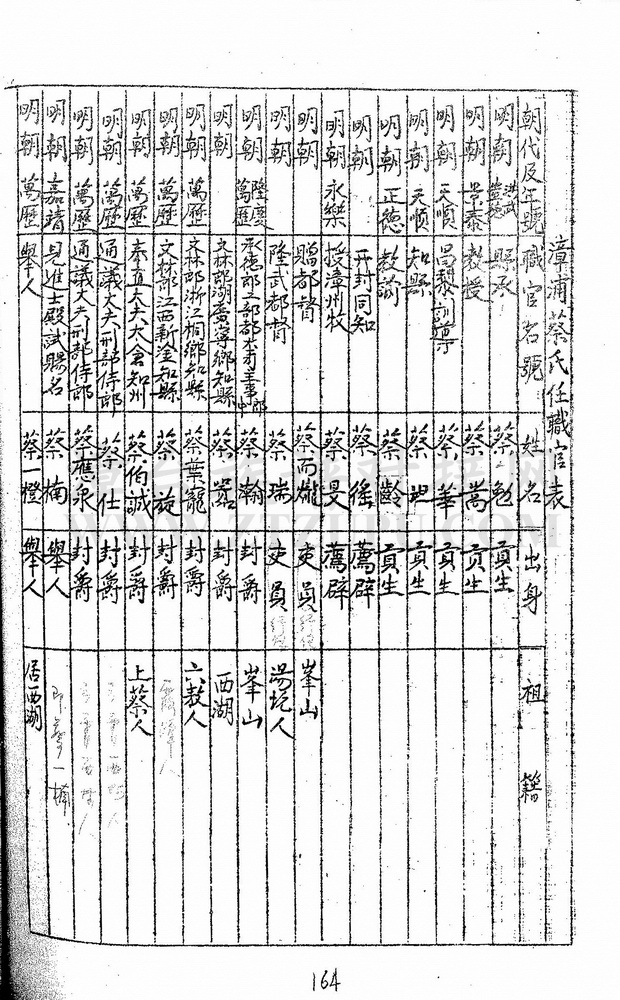 漳浦蔡氏任職官表
朝代及年號 職官名號 姓名 出身 祖籍
明朝 洪武 縣承 蔡勉 貢生
明朝 景泰 教授 蔡嵩 貢生
明朝 天順 昌黎訓導 蔡華 貢生
明朝 天順 知縣 貢生
明朝 正德 教諭 蔡齡 貢生
明朝 開封同知 蔡 薦辟
明朝 永樂 授漳州牧 蔡旻 薦辟
明朝 贈都督 蔡而熾 吏員 峯山
明朝 隆武都督 蔡瑞 吏員 湯坑人
明朝 隆慶 萬歷 承德郎工部都水司主事郎中 蔡瀚 封爵 峯山
明朝 文林郎湖廣寧鄉知縣 蔡 封爵 西湖
明朝 萬歷 文林郎浙江桐鄉知縣 蔡葉寵 封爵 六敖人
明朝 萬歷 文林郎江西新淦知縣 蔡旋 封爵
明朝 萬歷 奉直大夫太倉知州 蔡伯誠 封爵 上蔡人
明朝 萬歷 通議大夫刑部侍郎 蔡仕 封爵
明朝 萬歷 通議大夫刑部侍郎 蔡應泉 封爵
明朝 嘉靖 見進士殿試賜名 蔡楠 舉人
明朝 萬歷 舉人 蔡一橙 舉人 居西湖
164